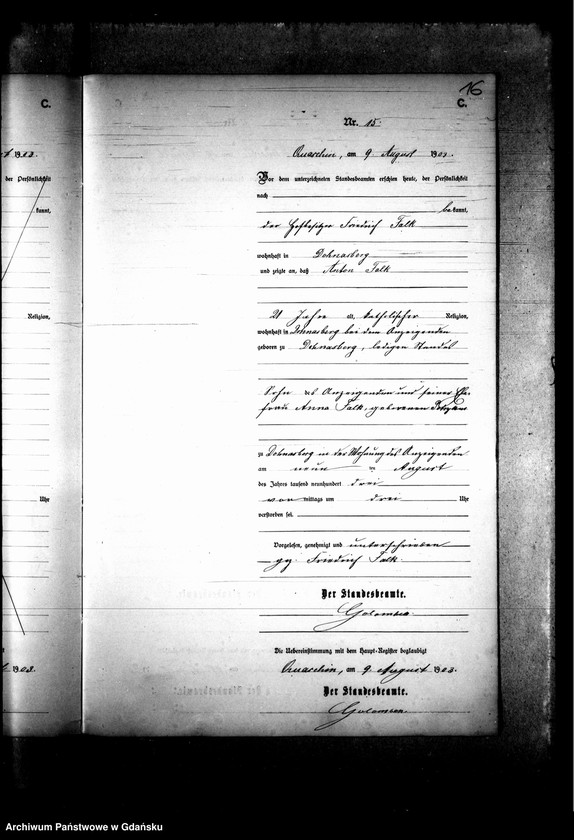 16
C.
C.
Nr. 15.
Quaschin, am 9 August 1903.
Vor dem unterzeichneten Standesbeamten erschien heute, der Persönlichkeit
nach
bekannt,
der Hofbesitzer Friedrich Falk
wohnhaft in Dohnasberg
und zeigte an, daß Anton Falk
21 Jahre alt, katholischer Religion,
wohnhaft in Dohnasberg bei dem Anzeigenden
geboren zu Dohnasberg, ledigen Standes
Sohn des Anzeigenden und seiner Ehe-
frau Anna Falk, geborenen
zu Dohnasberg in der Wohnung des Anzeigenden
am neun ten August
des Jahres tausend neunhundert drei
vor mittags um drei Uhr
verstorben sei.
Vorgelesen, genehmigt und unterschrieben
gez. Friedrich Falk.
Der Standesbeamte.
Die Uebereinstimmung mit dem Haupt-Register beglaubigt
Quaschin, am 9 August 1903.
Der Standesbeamte.
der Persönlichkeit
kannt,
Religion,
Uhr
Archiwum Państwowe w Gdańsku